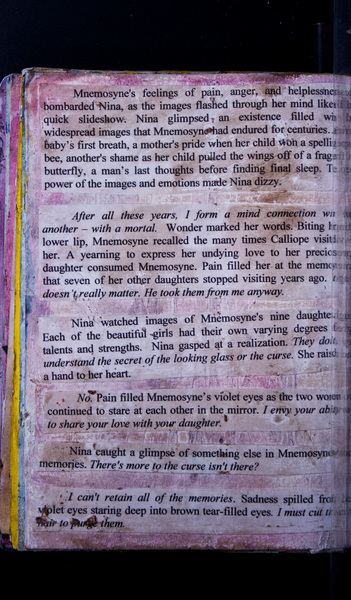 Mnemosyne's feelings of pain, anger, and helplessness
bombarded Nina, as the images flashed through her mind like
quick slideshow. Nina glimpsed an existence filled
widespread images that Mnemosyne had endured for centuries...
baby's first breath, a mother's pride when her child won a spelling
bee, another's shame as her child pulled the wings off of a fragile
butterfly, a man's last thoughts before finding final sleep.
power of the images and emotions made Nina dizzy.
After all these years, I form a mind connection
another – with a mortal. Wonder marked her words. Biting
lower lip, Mnemosyne recalled the many times Calliope visited
her. A yearning to express her undying love to her precious
daughter consumed Mnemosyne. Pain filled her at the memory
that seven of her other daughters stopped visiting years ago.
doesn't really matter. He took them from me anyway.
Nina watched images of Mnemosyne's nine daughters.
Each of the beautiful girls had their own varying degrees
talents and strengths. Nina gasped at a realization. They don't
understand the secret of the looking glass or the curse. She raised
a hand to her heart.
No. Pain filled Mnemosyne's violet eyes as the two women
continued to stare at each other in the mirror. I envy your ability
to share your love with your daughter.
Nina caught a glimpse of something else in Mnemosyne's
memories. There's more to the curse isn't there?
I can't retain all of the memories. Sadness spilled from
violet eyes staring deep into brown tear-filled eyes. I must cut
hair to purge them.